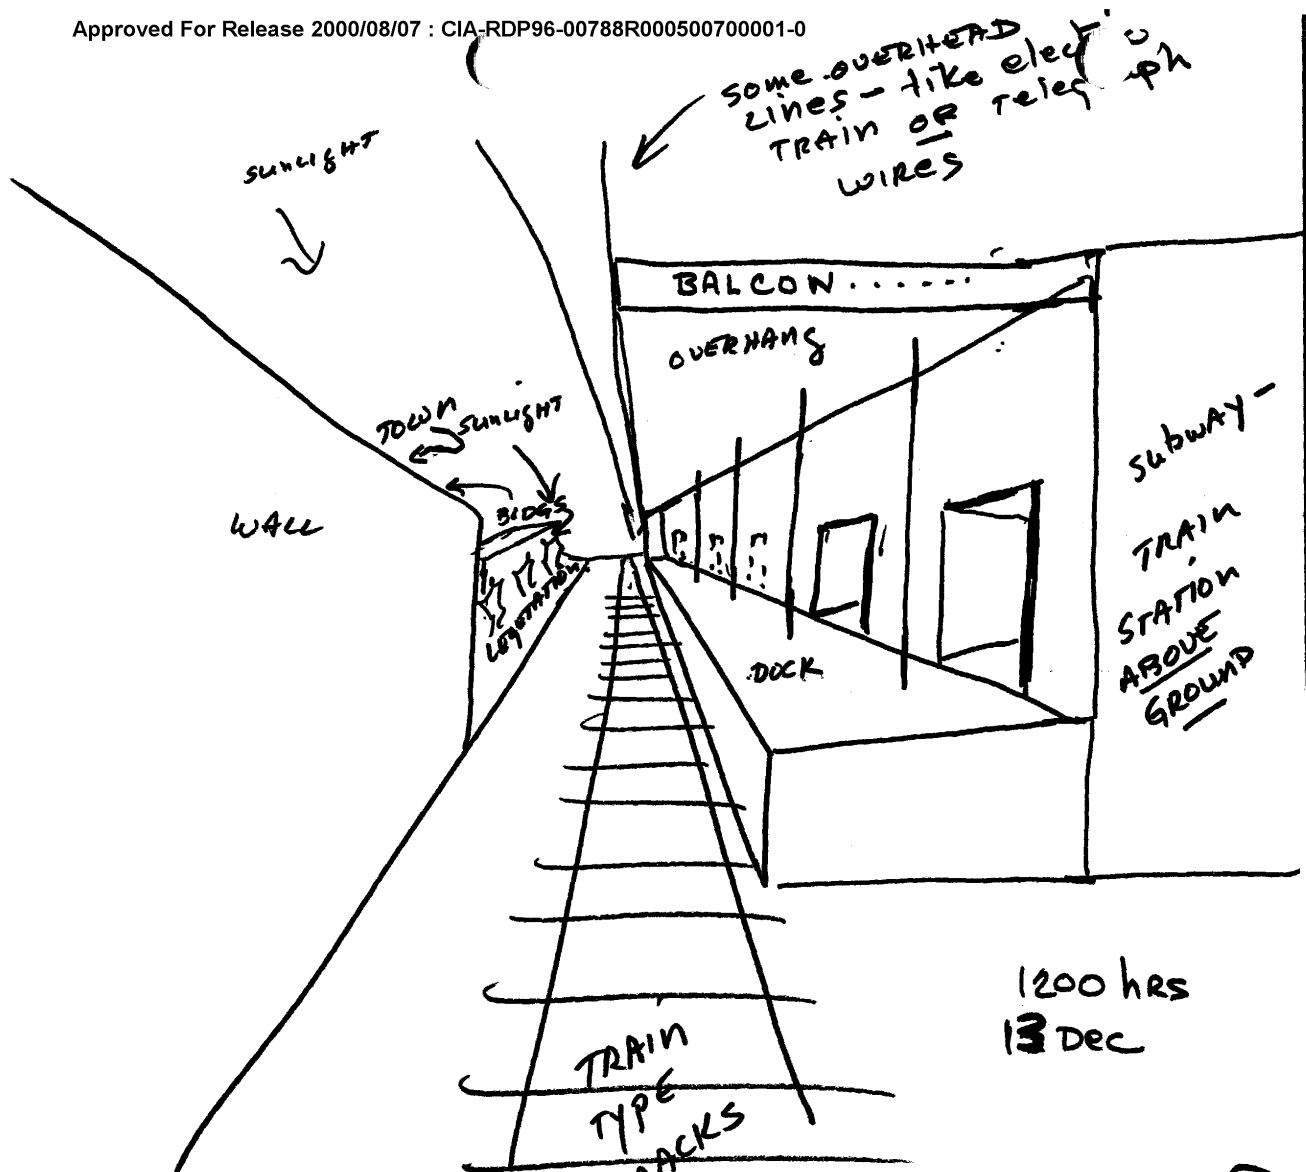 Approved For Release 2000/08/07 : CIA-RDP96-00788R000500700001-0
SOME OVERHEAD
LINES - like
TRAIN OR
WIRES
SUNLIGHT
BALCON.......
OVERHANG
TOWN
SUNLIGHT
BLDGS
WALL
VEGETATION
DOCK
SUBWAY-
TRAIN
STATION
ABOVE
GROUND
1200 hRS
13 Dec
TRAIN
TYPE